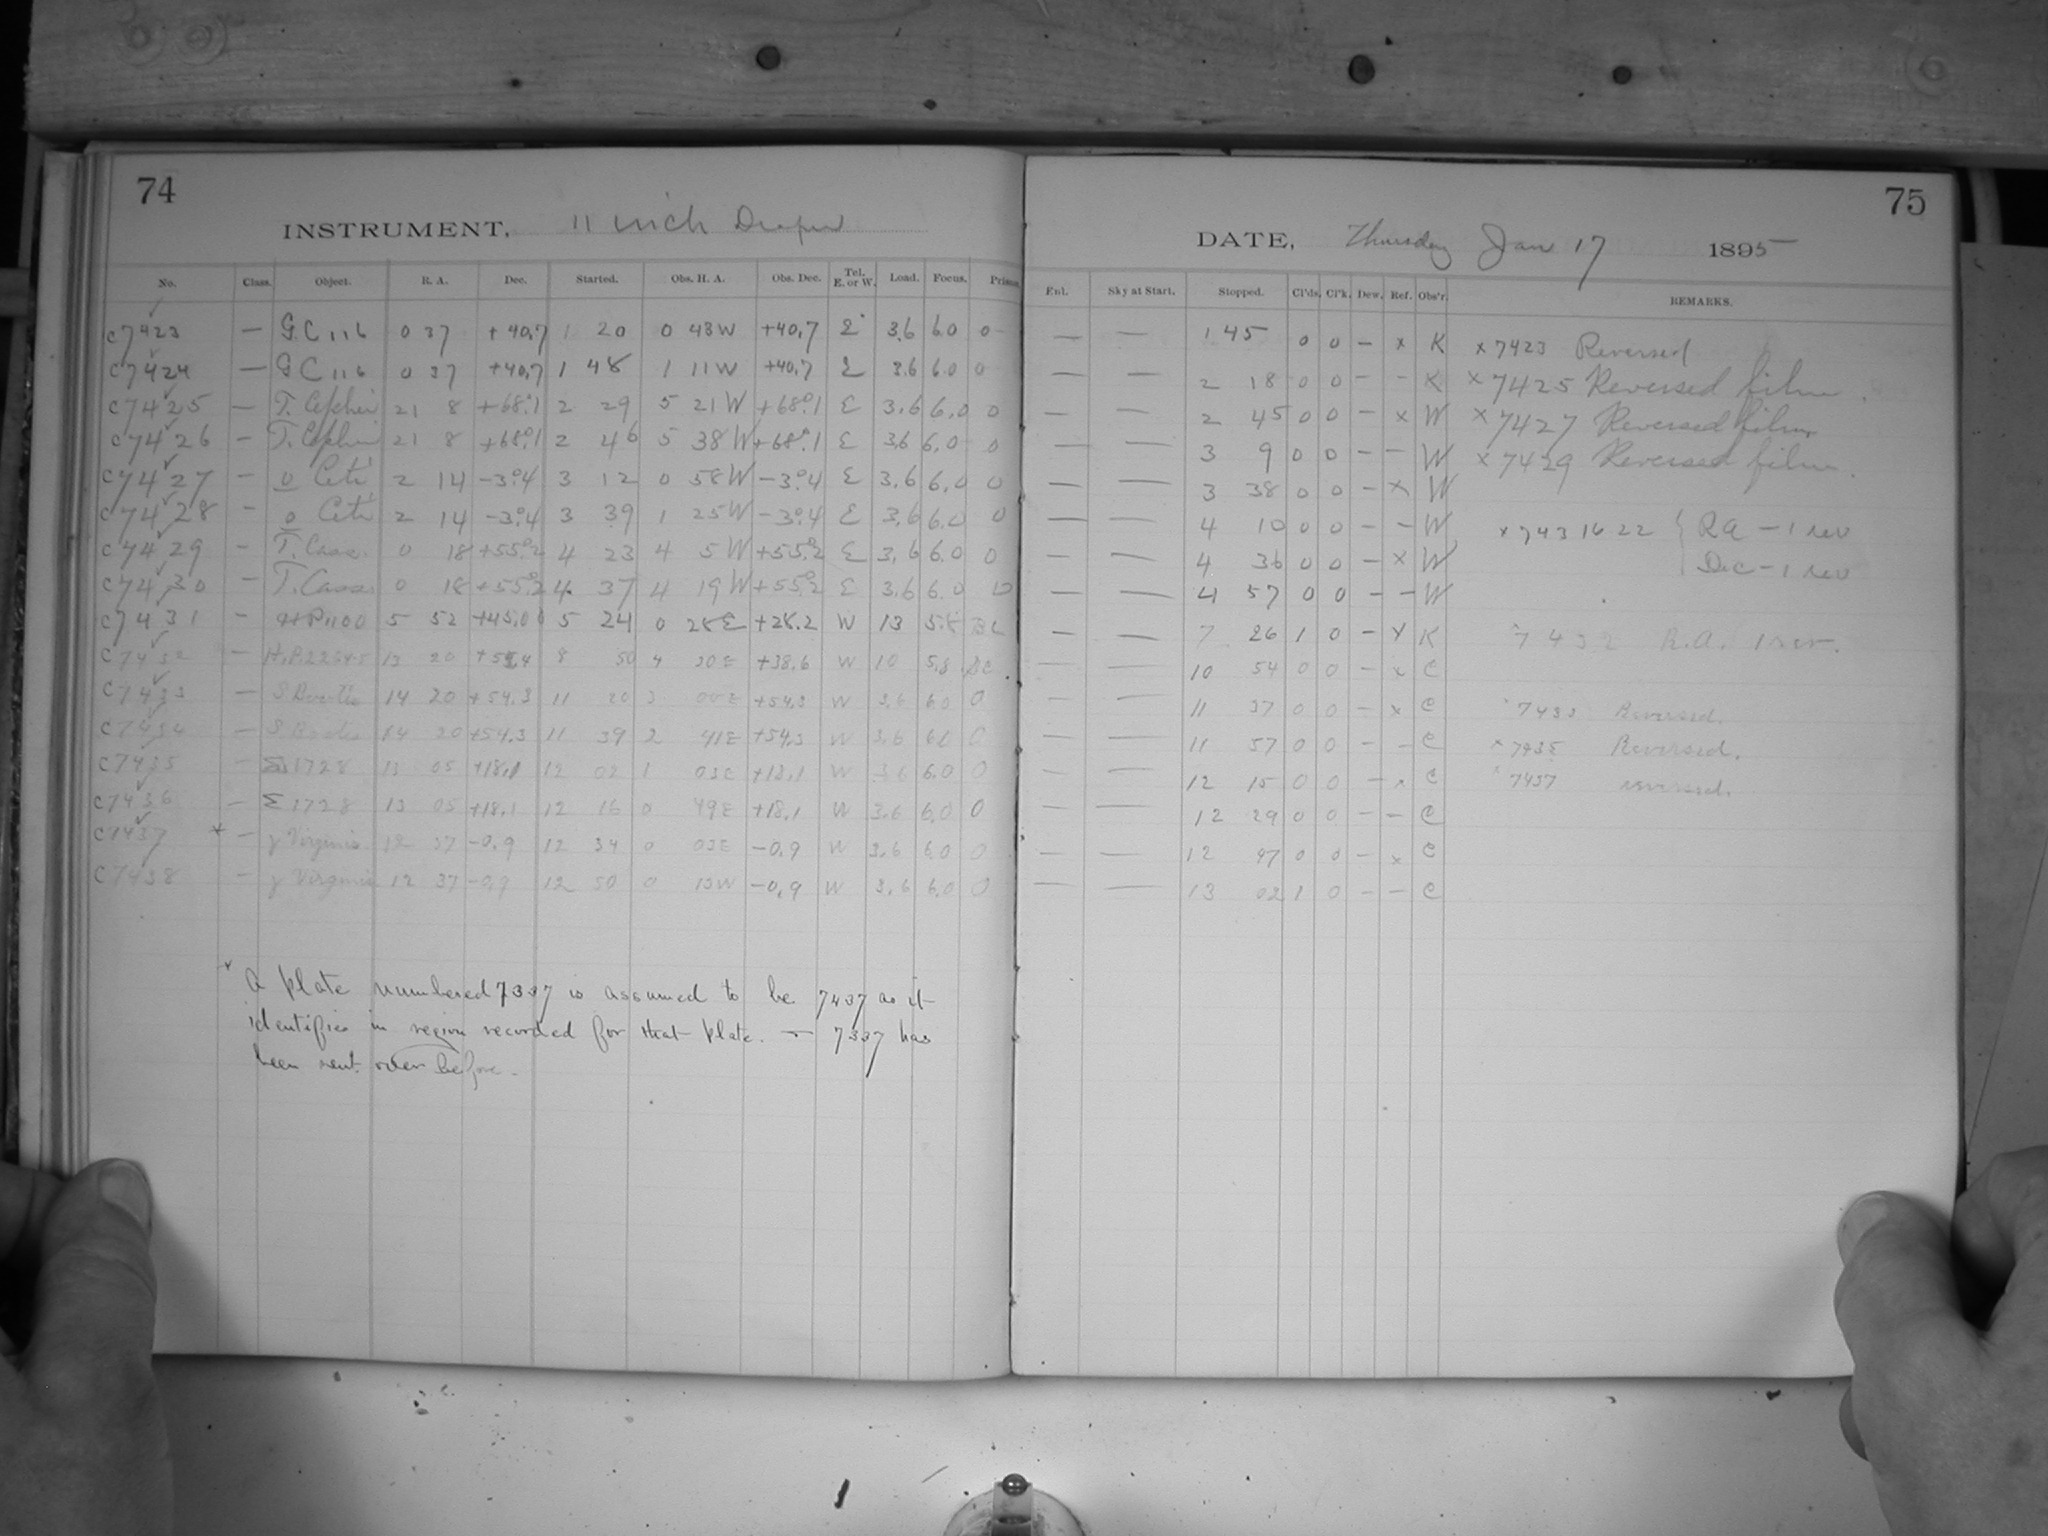 74
INSTRUMENT, 11 inch Draper
No. Class. Object. R. A. Dec. Started. Obs. H. A. Obs. Dec. Tel. E. or W. Load. Focus. Prism.
C7423 — G.C 116 0 37 +40.7 1 20 0 43W +40.7 E 3.6 6.0 0
C7424 — G C 116 0 37 +40.7 1 48 1 11W +40.7 E 3.6 6.0 0
C7425 — T. Cephei 21 8 +68°.1 2 29 5 21W +68°.1 E 3.6 6.0 0
C7426 — T. Cephei 21 8 +68°.1 2 46 5 38W +68°.1 E 3.6 6.0 0
C7427 — o Ceti 2 14 -3°.4 3 12 0 58W -3°.4 E 3.6 6.0 0
C7428 — o Ceti 2 14 -3°.4 3 39 1 25W -3°.4 E 3.6 6.0 0
C7429 — T. Cass. 0 18 +55°.2 4 23 4 5W +55°.2 E 3.6 6.0 0
C7430 — T. Cass. 0 18 +55°.2 4 37 4 19W +55°.2 E 3.6 6.0 0
C7431 — 5 52 +45.0 5 24 0 28E +28.2 W 13 5.8
C7432 — 13 20 8 50 4 +38.6 W 10 5.8
C7433 — S Bootis 14 20 +54.3 11 20 3 00E +54.3 W 3.6 6.0 0
C7434 — S. Bootis 14 20 +54.3 11 39 2 41E +54.3 W 3.6 6.0 0
C7435 — Σ 1728 13 05 +18.1 12 02 1 03E +18.1 W 3.6 6.0 0
C7436 — Σ 1728 13 05 +18.1 12 16 0 49E +18.1 W 3.6 6.0 0
C7437 * — γ Virginis 12 37 -0.9 12 34 0 03E -0.9 W 3.6 6.0 0
C7438 — γ Virginis 12 37 -0.9 12 50 0 13W -0.9 W 3.6 6.0 0
* A plate numbered 7337 is assumed to be 7437 as it
identifies in region recorded for that plate. — 7337 has
been sent before.
75
DATE, Thursday Jan 17 1895
Ent. Sky at Start. Stopped. Cl'ds. Cl'k. Dew. Ref. Obs'r. REMARKS.
— — 1 45 0 0 — x K x 7423 Reversed
— — 2 18 0 0 — — K x 7425 Reversed film.
— — 2 45 0 0 — x W x 7427 Reversed film
— — 3 9 0 0 — — W x 7429 Reversed film.
— — 3 38 0 0 — x W
— — 4 10 0 0 — — W x 7431 1622 { RA — 1 rev
— — 4 36 0 0 — x W Dec — 1 rev
— — 4 57 0 0 — — W
— — 7 26 1 0 — x K x 7432 R.A. 1 rev.
— — 10 54 0 0 — x C
— — 11 37 0 0 — x C x 7433 Reversed.
— — 11 57 0 0 — — C x 7435 Reversed.
— — 12 15 0 0 — x C x 7437 reversed.
— — 12 29 0 0 — — C
— — 12 47 0 0 — x C
— — 13 02 1 0 — — C